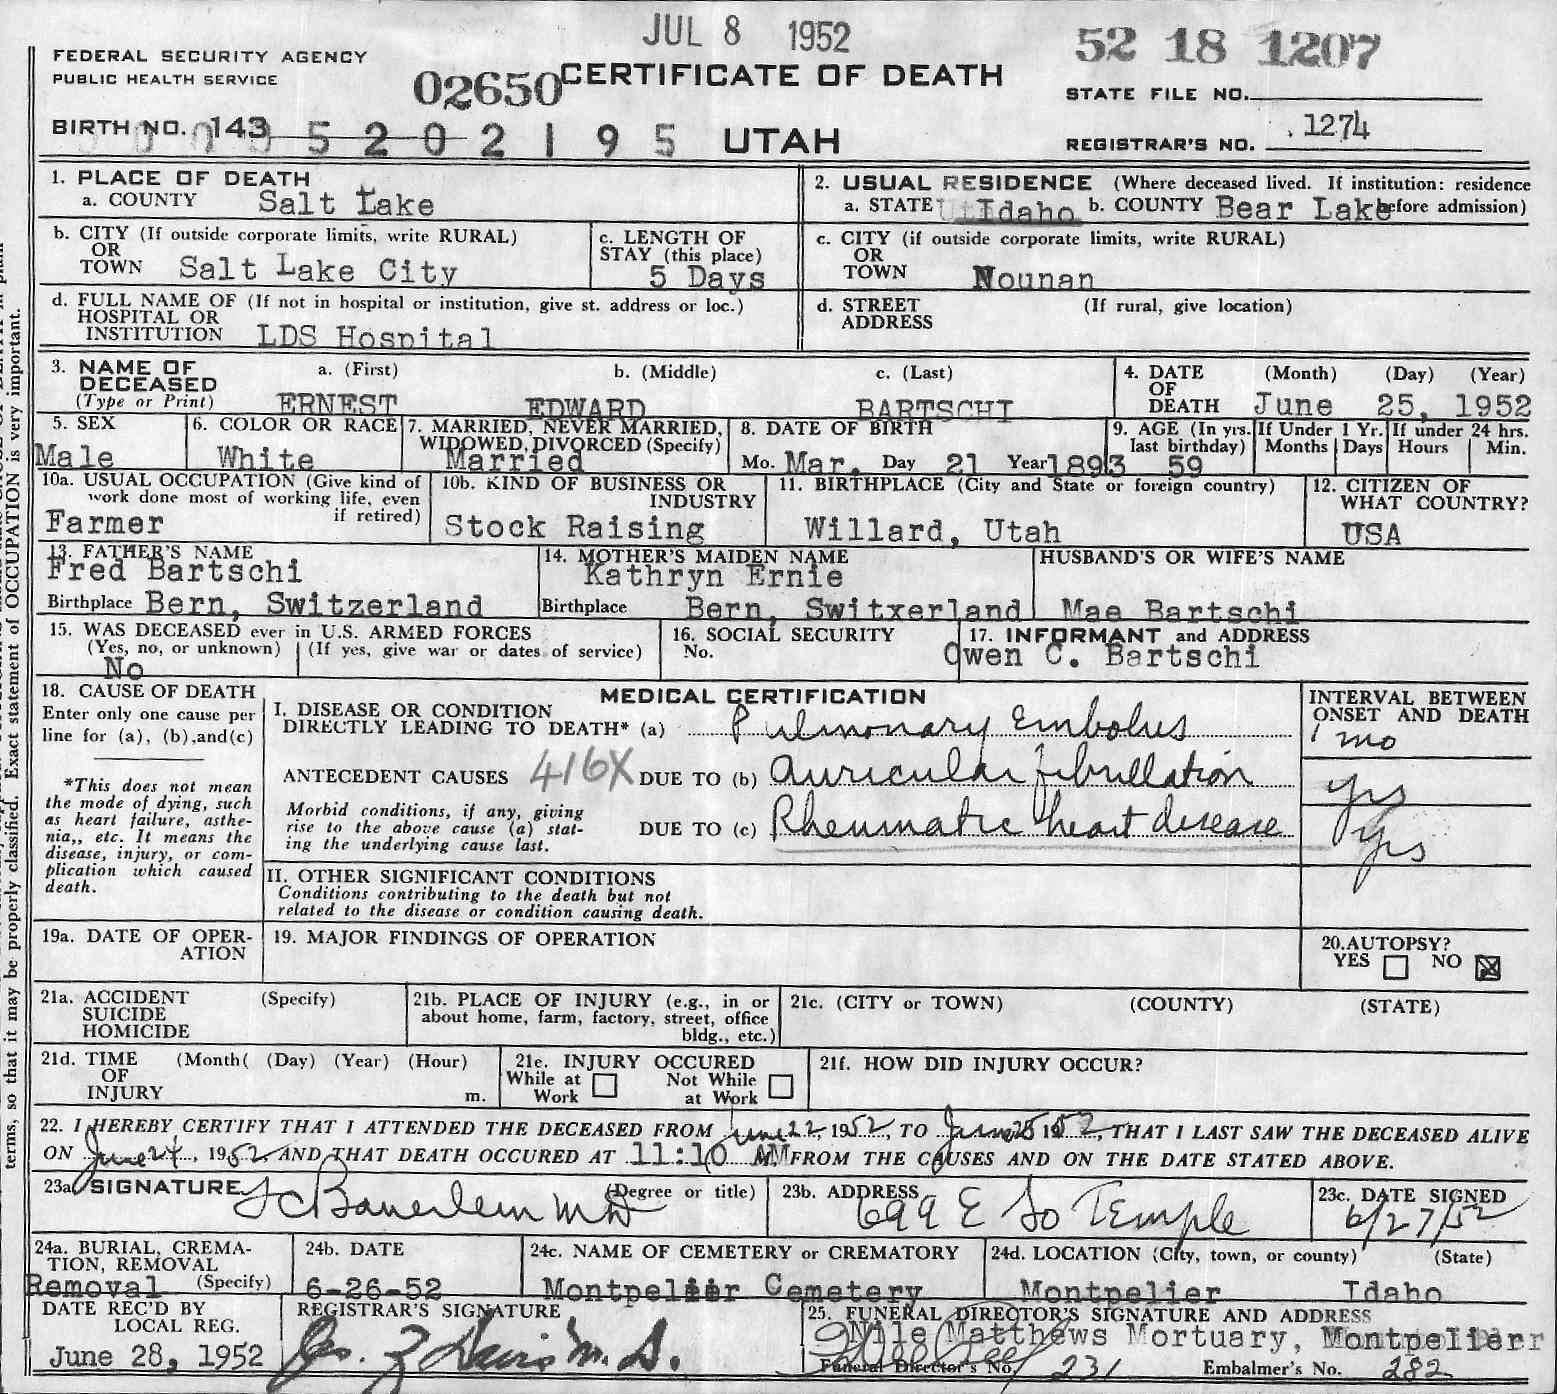 JUL 8 1952
52 18 1207
FEDERAL SECURITY AGENCY
PUBLIC HEALTH SERVICE
02650
CERTIFICATE OF DEATH
STATE FILE NO.
BIRTH NO. 143
5 2 0 2 1 9 5
UTAH
REGISTRAR'S NO. 1274
1. PLACE OF DEATH
a. COUNTY Salt Lake
2. USUAL RESIDENCE (Where deceased lived. If institution: residence
before admission)
a. STATE Idaho b. COUNTY Bear Lake
b. CITY (If outside corporate limits, write RURAL)
OR
TOWN Salt Lake City
c. LENGTH OF
STAY (this place)
5 Days
c. CITY (if outside corporate limits, write RURAL)
OR
TOWN Nounan
d. FULL NAME OF (If not in hospital or institution, give st. address or loc.)
HOSPITAL OR
INSTITUTION LDS Hospital
d. STREET (If rural, give location)
ADDRESS
3. NAME OF
DECEASED
(Type or Print)
a. (First) b. (Middle) c. (Last)
ERNEST EDWARD BARTSCHI
4. DATE (Month) (Day) (Year)
OF
DEATH June 25, 1952
5. SEX
Male
6. COLOR OR RACE
White
7. MARRIED, NEVER MARRIED,
WIDOWED, DIVORCED (Specify)
Married
8. DATE OF BIRTH
Mo. Mar. Day 21 Year 1893
9. AGE (In yrs.
last birthday)
59
If Under 1 Yr.
Months Days
If under 24 hrs.
Hours Min.
10a. USUAL OCCUPATION (Give kind of
work done most of working life, even
if retired)
Farmer
10b. KIND OF BUSINESS OR
INDUSTRY
Stock Raising
11. BIRTHPLACE (City and State or foreign country)
Willard, Utah
12. CITIZEN OF
WHAT COUNTRY?
USA
13. FATHER'S NAME
Fred Bartschi
Birthplace Bern, Switzerland
14. MOTHER'S MAIDEN NAME
Kathryn Ernie
Birthplace Bern, Switxerland
HUSBAND'S OR WIFE'S NAME
Mae Bartschi
15. WAS DECEASED ever in U.S. ARMED FORCES
(Yes, no, or unknown) (If yes, give war or dates of service)
No
16. SOCIAL SECURITY
No.
17. INFORMANT and ADDRESS
Owen C. Bartschi
18. CAUSE OF DEATH
Enter only one cause per
line for (a), (b),and(c)
*This does not mean
the mode of dying, such
as heart failure, asthe-
nia,, etc. It means the
disease, injury, or com-
plication which caused
death.
MEDICAL CERTIFICATION
INTERVAL BETWEEN
ONSET AND DEATH
I. DISEASE OR CONDITION
DIRECTLY LEADING TO DEATH* (a) Pulmonary Embolus
1 mo
ANTECEDENT CAUSES 416X DUE TO (b) Auricular fibrillation
yrs
Morbid conditions, if any, giving
rise to the above cause (a) stat-
ing the underlying cause last.
DUE TO (c) Rheumatic heart disease
yrs
II. OTHER SIGNIFICANT CONDITIONS
Conditions contributing to the death but not
related to the disease or condition causing death.
19a. DATE OF OPER-
ATION
19. MAJOR FINDINGS OF OPERATION
20. AUTOPSY?
YES NO
21a. ACCIDENT (Specify)
SUICIDE
HOMICIDE
21b. PLACE OF INJURY (e.g., in or
about home, farm, factory, street, office
bldg., etc.)
21c. (CITY or TOWN) (COUNTY) (STATE)
21d. TIME (Month( (Day) (Year) (Hour)
OF
INJURY m.
21e. INJURY OCCURED
While at Not While
Work at Work
21f. HOW DID INJURY OCCUR?
22. I HEREBY CERTIFY THAT I ATTENDED THE DECEASED FROM June 22, 1952, TO June 25 1952, THAT I LAST SAW THE DECEASED ALIVE
ON June 24, 1952 AND THAT DEATH OCCURED AT 11:10 AM FROM THE CAUSES AND ON THE DATE STATED ABOVE.
23a SIGNATURE (Degree or title)
Bauerlein MD
23b. ADDRESS
699 E So Temple
23c. DATE SIGNED
6/27/52
24a. BURIAL, CREMA-
TION, REMOVAL
Removal (Specify)
24b. DATE
6-26-52
24c. NAME OF CEMETERY or CREMATORY
Montpelier Cemetery
24d. LOCATION (City, town, or county) (State)
Montpelier Idaho
DATE REC'D BY
LOCAL REG.
June 28, 1952
REGISTRAR'S SIGNATURE
M. D.
25. FUNERAL DIRECTOR'S SIGNATURE AND ADDRESS
Matthews Mortuary, Montpelier
Funeral Director's No. 231 Embalmer's No. 282
is very important.
terms, so that it may be properly classified. Exact statement of OCCUPATION